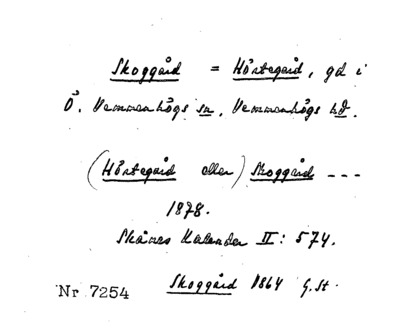 Skoggård = Hörtegård, gd i
Ö. Vemmenhögs sn, Vemmenhögs hd.
(Hörtegård eller) Skoggård ---
1878.
Skånes Kalender II: 574.
Skoggård 1864 G.St.
Nr 7254